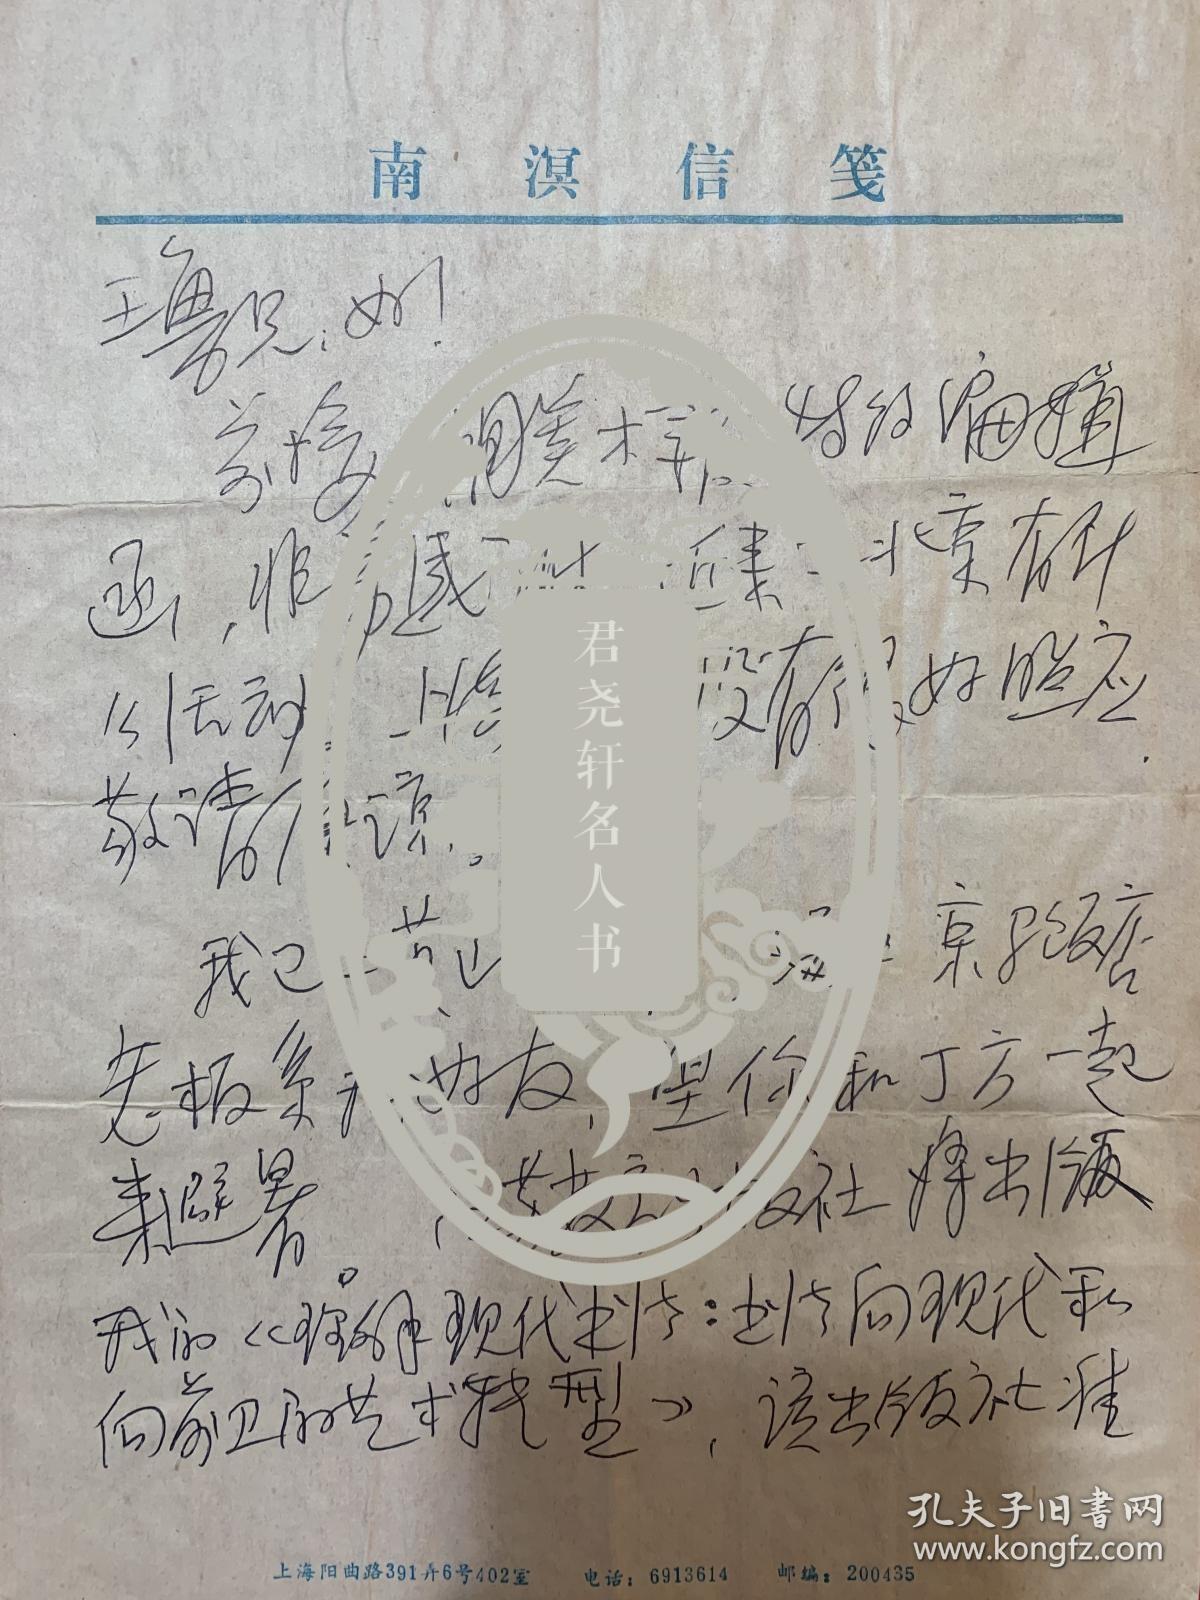 南溟信笺
王 兄:好!
前接 美术 特约编辑
函,非常感 近 来 北京有什
么活动 上海 没有 好照应.
敬请 谅。
我已 京 饭店
老板系我 好友,望你和丁方一起
来避暑。 教育出版社将出版
我的《理解现代书法:书法向现代和
向前卫的艺术转型》,该出版社准
君尧轩名人书
上海阳曲路391弄6号402室 电话:6913614 邮编:200435
孔夫子旧书网
www.kongfz.com